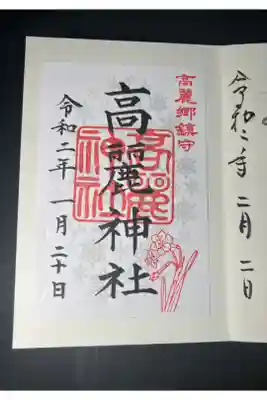 高麗郷鎮守
高麗神社
高麗神社
令和二年 一月二十日
令和二年 二月 二日